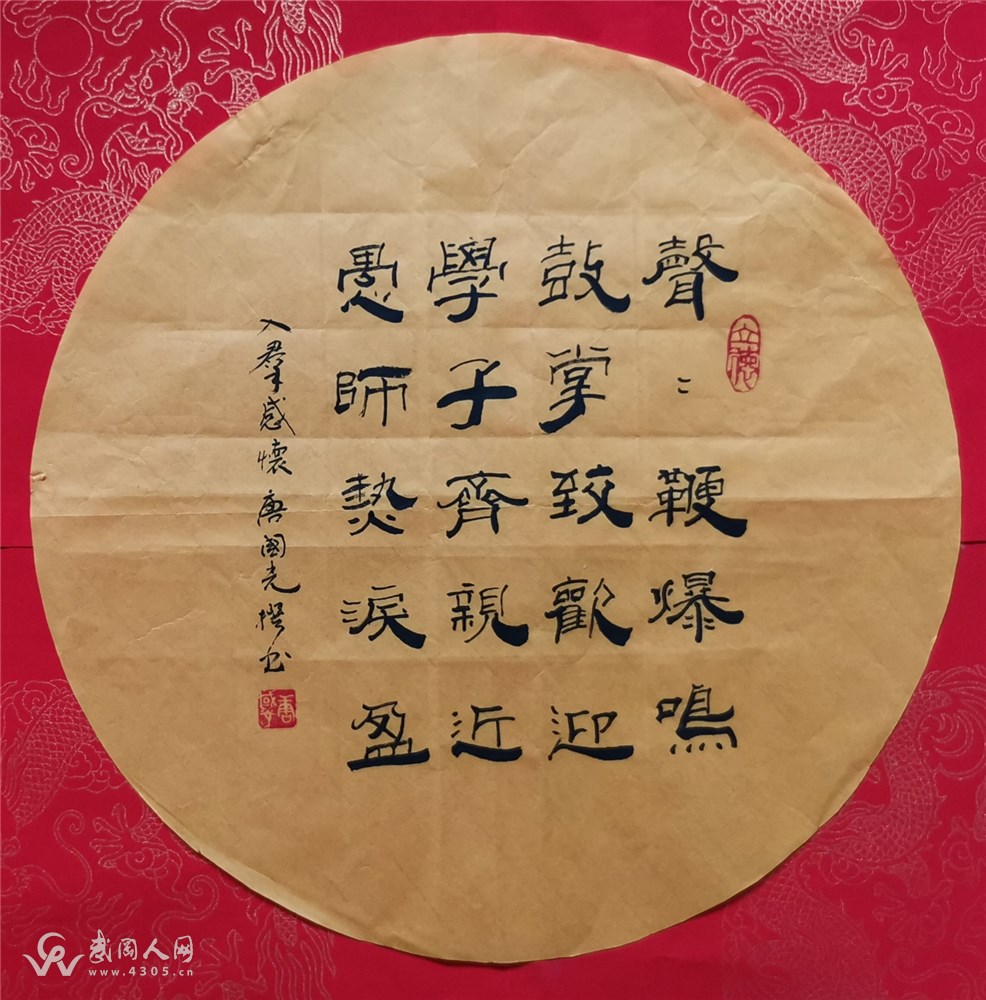 聲〻鞭爆鳴
鼓掌致歡迎
學子齊親近
愚師熱淚盈
入羣感懷 唐國光撰书
立德
武冈人网
www.4305.cn